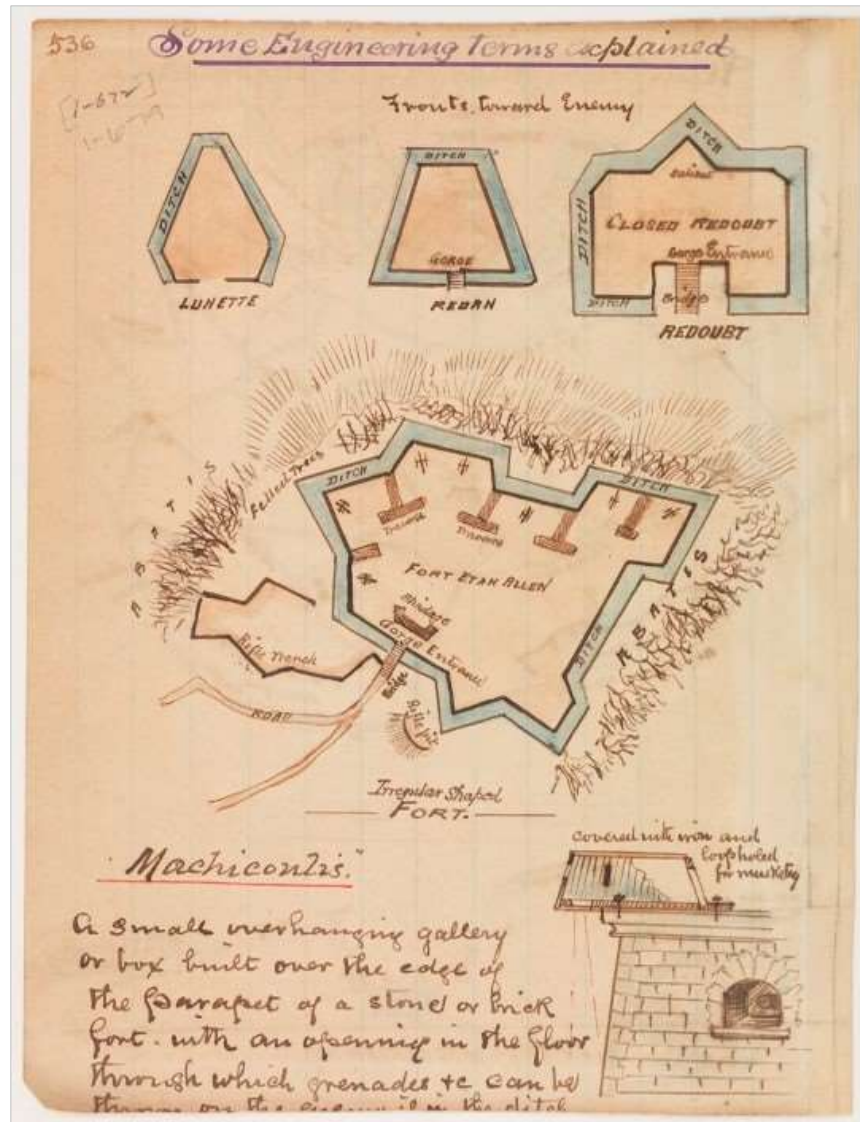 536
Some Engineering terms explained
[1-672]
1-6-79
Fronts, toward Enemy
DITCH
LUNETTE
DITCH
GORGE
REDAN
DITCH
Salient
DITCH
CLOSED REDOUBT
Gorge Entrance
DITCH
Bridge
REDOUBT
ABATIS
Felled Trees
DITCH
DITCH
Traverse
Traverse
FORT ETAH ALLEN
ABATIS
Gorge Entrance
DITCH
Rifle Trench
Bridge
ROAD
Rifle Pit
Irregular Shaped
FORT.
covered with iron and
loopholed
for musketry
Machicoulis."
A small overhanging gallery
or box built over the edge of
the Parapet of a stone or brick
fort. with an opening in the floor
through which grenades &c can be
thrown on the enemy if in the ditch